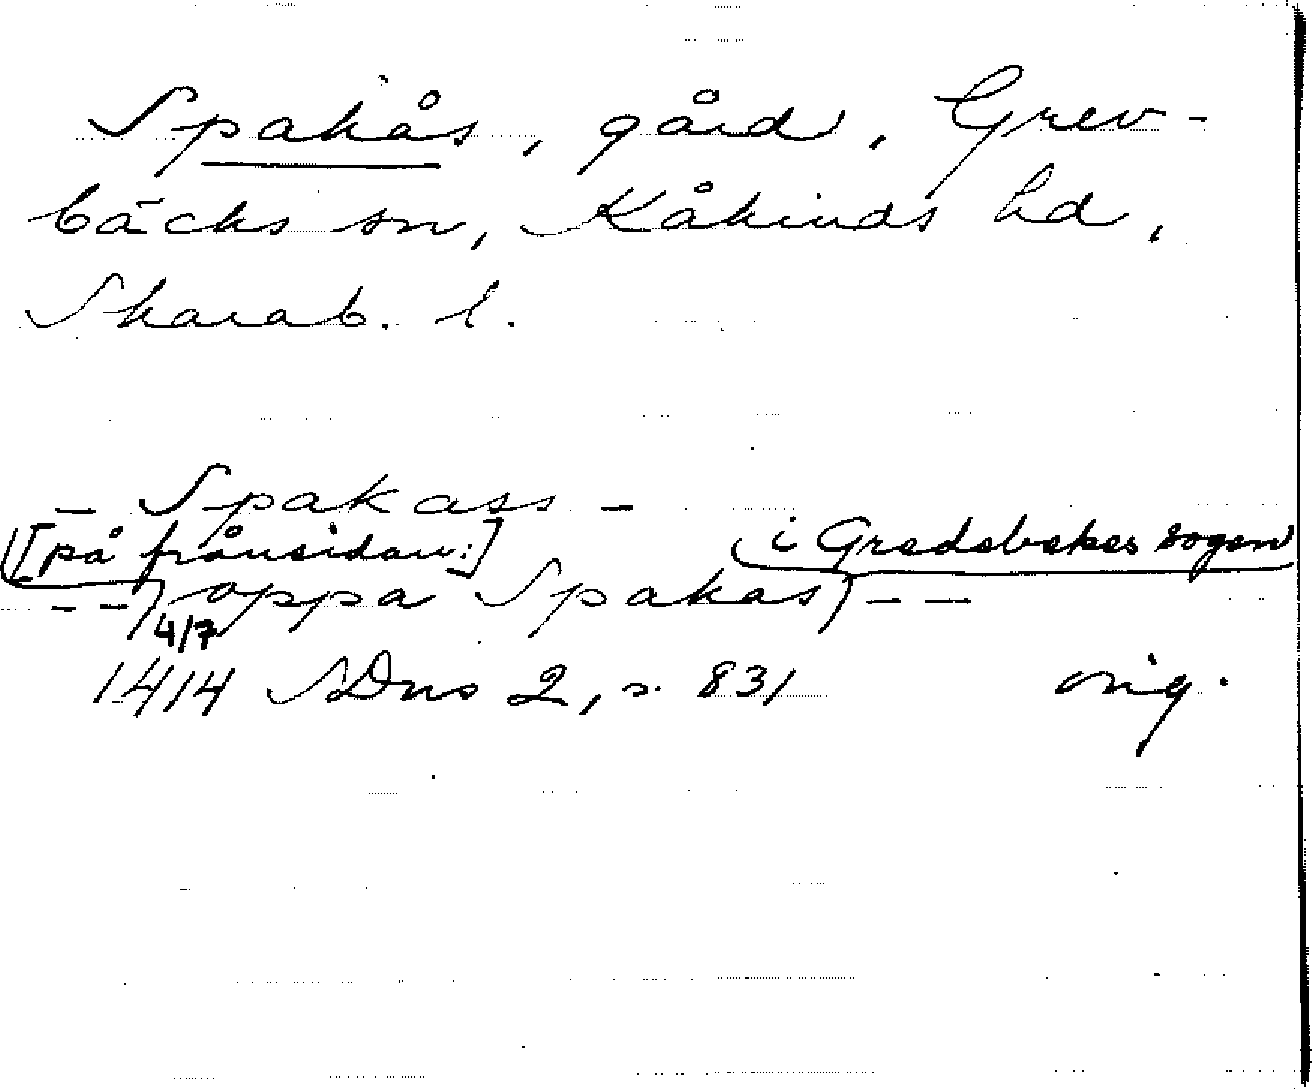 Spakås, gård, Grev-
bäcks sn, Kåkinds hd,
Skarab. l.
– Spakass –
[på frånsidan:]
i Gredebekes sogen
– – oppa Spakas – –
4/7
1414 SDns 2, s. 831 orig.